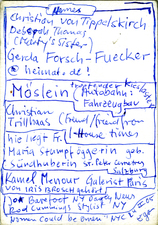 Names
Christian von Tippelskirch
Deborah Thomas
(Chrity's Sister)
Gerda Forsch-Fuecker
@ heimat.de!
Möslein
Autobahn
Fahrzeugbau
Christian
Trillhas (Freud/freud)von
hie liegt f. I-House times
Maria Stumpfögerin geb.
Sündhuberin St. Peter Cemetery
Salzburg
Kamel Menour Galerist Paris
von IRIS BROSCH geliebt
JOX Barefoot NY Daily News
Rod Cummings Stylist NY
"Women Could be Enemies" NYC